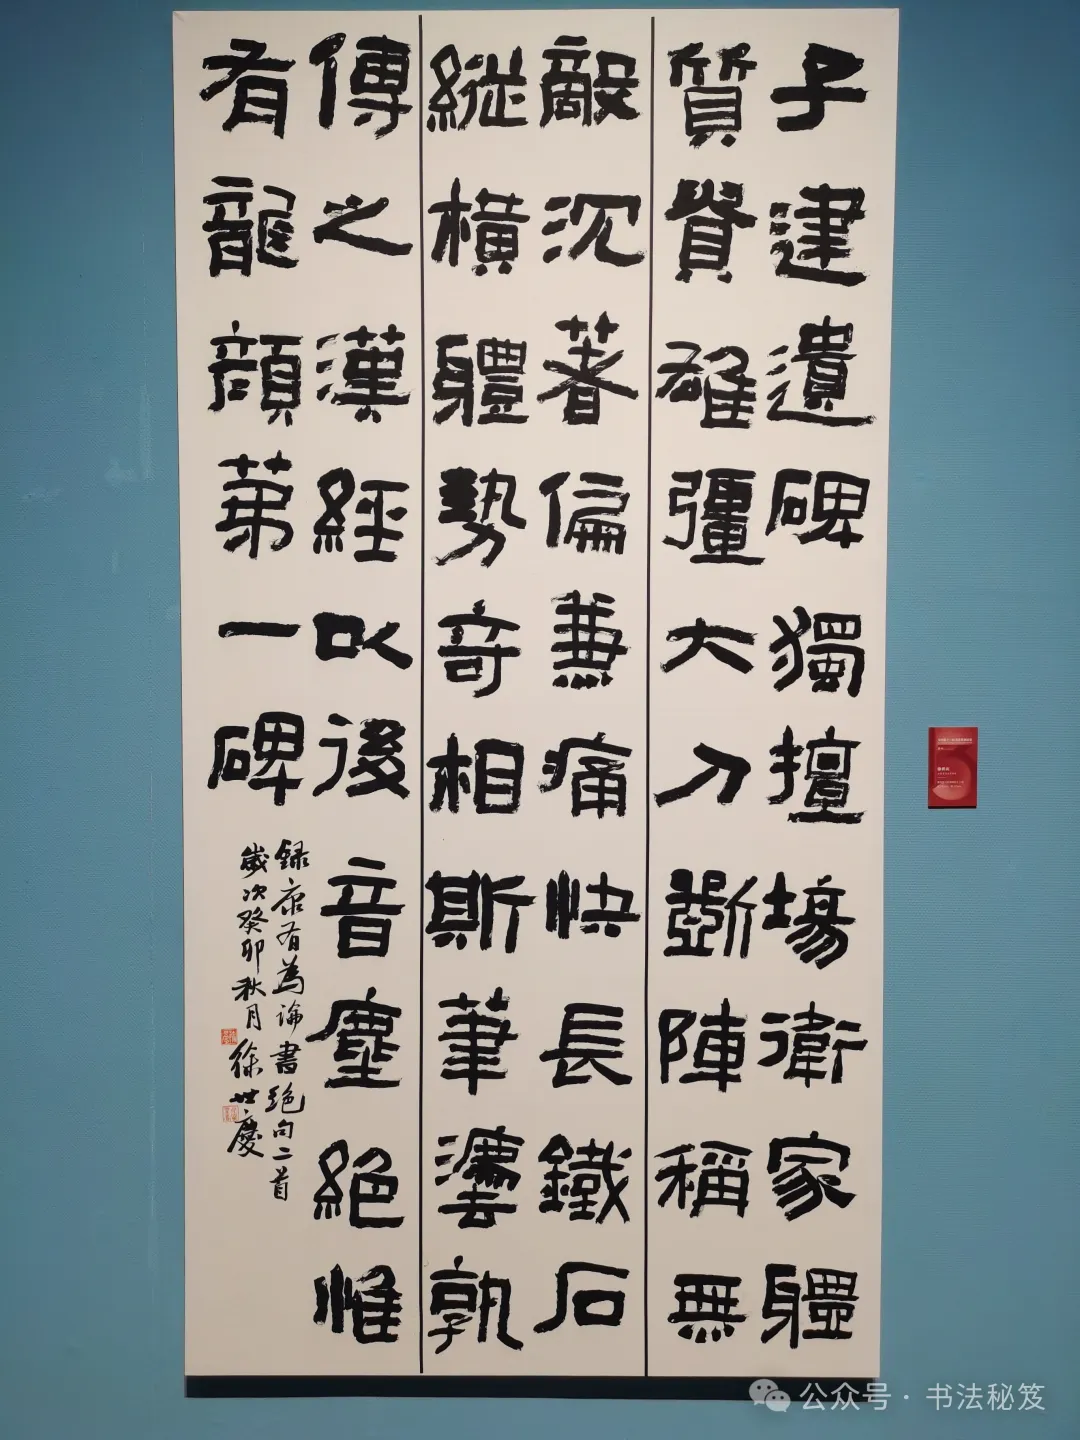 子建遺碑獨擅場衛家軆
質雄彊大刀斲陣稱無
敵沉著偏兼痛快長鐵石
縱橫軆勢奇相斯筆灋孰
傳之漢經以後音塵絕惟
有龍顏第一碑
録康有為論書絶句二首
歲次癸卯秋月徐世慶
公众号·书法秘笈